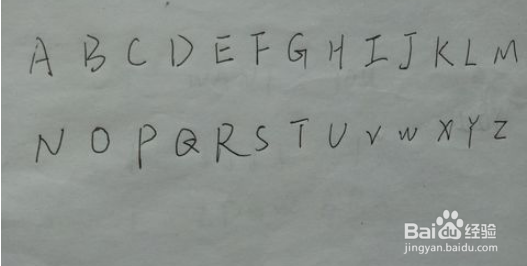 A B C D E F G H I J K L M
N O P Q R S T U V W X Y Z
Bai du 经验
jingyan.baidu.com